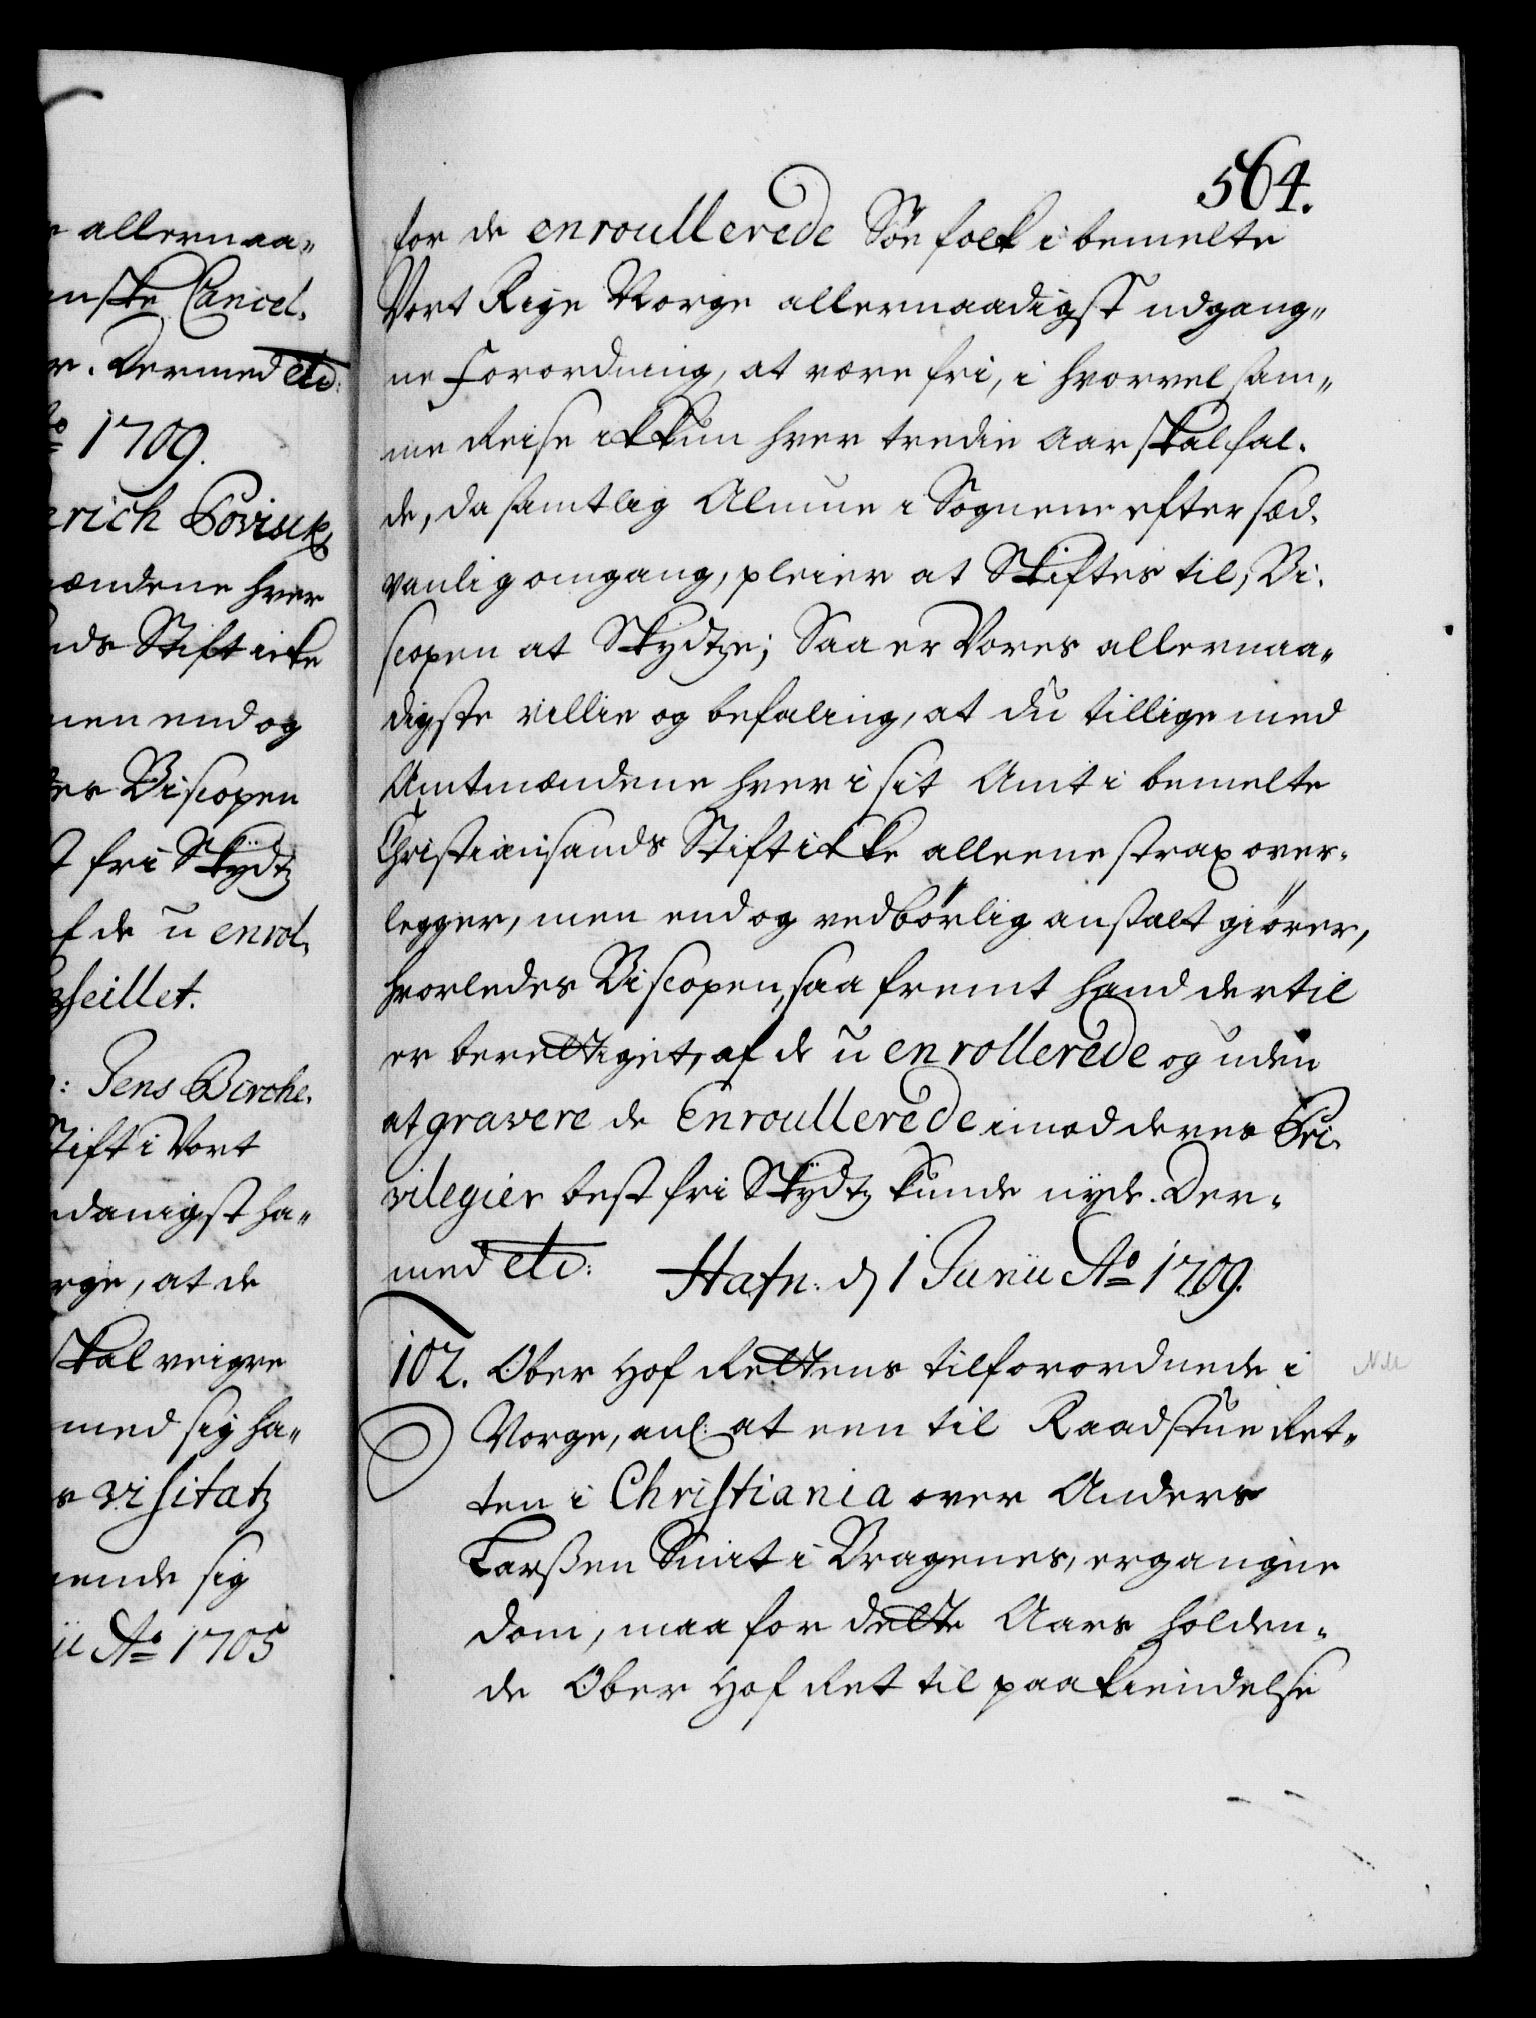 e allernaa„
nske Cancel.
r. Dermed etc:
Ao 1709.
erich
ændene hver
nds Stift icke
men end og
tes Biscopen
t fri Skÿdtz
f de u enrol.
zheillet.
: Jens Birche.
Stift i Vort
danigst ha„
rge, at de
skal veigre
med sig ha„
s visitatz
ende sig
ii Ao 1705
564.
for de enroullerede Söefolk i bemelte
Vort Rige Norge allernaadigst udgang„
ne Forordning, at være fri, i hvorvel sam„
me Reise ikkun hver tredie Aar skal fal.
de, da samtlig Almue i Sognene efter sæd.
vanlig omgang, pleier at Skiftes til, Bi.
scopen at Skydtze; Saa er Vores allernaa„
digste villie og befaling, at du tillige med
Amtmændene hver i sit Amt i bemelte
Christiansands Stift ikke alleene strax over.
legger, men end og vedbörlig anstalt giörer,
hvorledes Biscopen, saa fremt hand dertil
er berettiget, af de u enrollerede og uden
at gravere de Enroullerede imod deres Pri.
vilegier best fri Skÿdtz kunde nyde. Der„
med etc: Hafn: d 1 Junii Ao 1709.
102. Ober Hof Rettens tilforordnede i
Norge, anl: at een til Raadstue Ret„
ten i Christiania over Anders
Larßen Smit i Bragenes, ergangne
dom, maa for dette Aars holden„
de Ober Hof Ret til paakiendelse